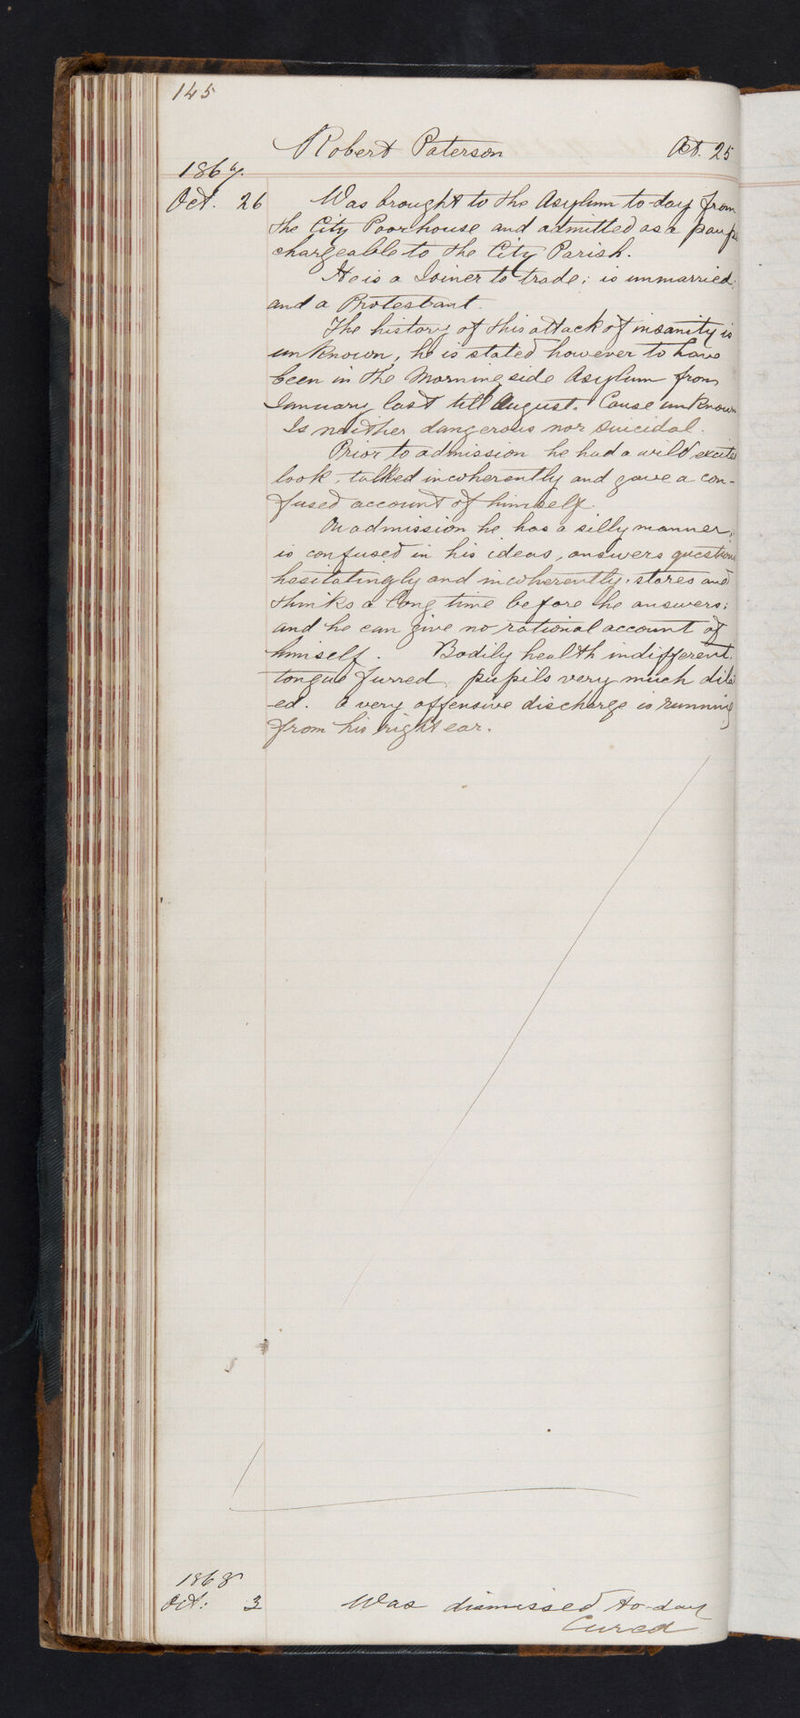 145
Robert Paterson Æt. 25
1867.
Oct. 26 Was brought to the Asylum to-day from
the City Poorhouse and admitted as a paup
chargeable to the City Parish.
He is a Joiner to trade; is unmarried;
and a Protestant.
The history of this attack of insanity is
unknown, he is stated however to have
been in the Morningside Asylum from
January last till August. Cause unknown
Is neither dangerous nor suicidal.
Prior to admission he had a wild excited
look, talked incoherently and gave a con-
fused account of himself.
On admission he has a silly manner,
is confused in his ideas, answers questions
hesitatingly and incoherently, stares and
thinks a long time before he answers;
and he can give no rational account of
himself. Bodily health indifferent.
tongue furred, pupils very much dila
-ed. A very offensive discharge is running
from his right ear.
1868
Oct: 3 Was dismissed to-day
Cured